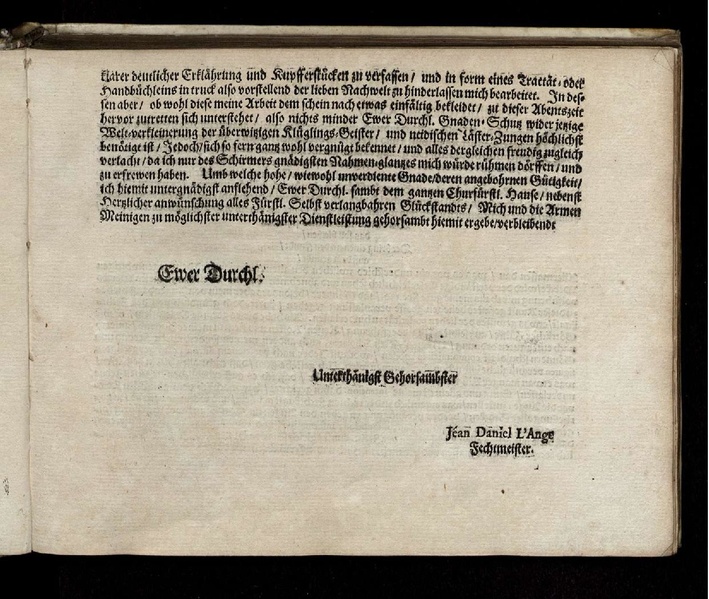 klarer deutlicher Erklährung und Kupfferstücken zu verfassen / und in form eines Tractät- oder
Handbüchleins in truck also vorstellend der lieben Nachwelt zu hinderlassen mich bearbeitet. In des-
sen aber / ob wohl diese meine Arbeit dem schein nach etwas einfältig bekleidet / zu dieser Abentszeit
hervor zutretten sich unterstehet / also nichts minder Ewer Durchl. Gnaden-Schutz wider jetzige
Welt-verkleinerung der überwitzigen Klüglings-Geister / und neidischen Läster-Zungen höchlichst
benötiget ist / Jedoch / sich so fern gantz wohl vergnügt bekennet / und alles dergleichen freudig zugleich
verlacht / da ich nur des Schirmers gnädigsten Nahmen-glantzes mich würde rühmen dörffen / und
zu erfrewen haben. Umb welche hohe / wiewohl unverdiente Gnade / deren angebohrnen Gütigkeit /
ich hiemit untergnädigst anflehend / Ewer Durchl. sambt dem gantzen Churfürstl. Hause / nebenst
Hertzlicher anwünschung alles Fürstl. Selbst verlangbahren Glückstandts / Mich und die Armen
Meinigen zu möglichster unterthänigster Dienstleistung gehorsambt hiemit ergebe / verbleibendt
Ewer Durchl.
Unterthänigst Gehorsambster
Jéan Daniel L'Ange
Fechtmeister.